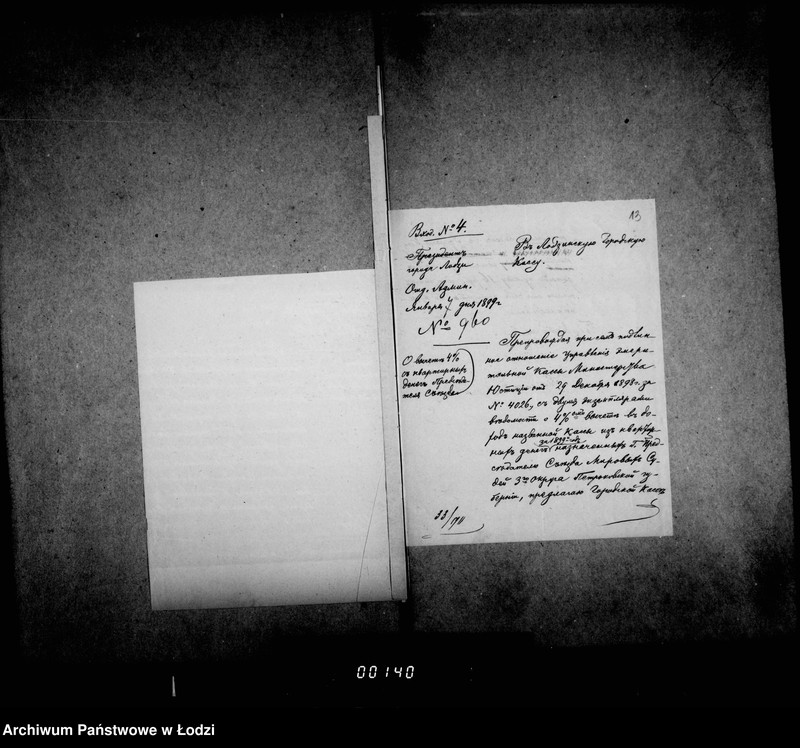 13
Вход. № 4.
Президентъ
города Лодзи
Отд. Админ.
Января 7 дня 1899 г
№ 960
О вычетѣ 4%
съ квартирныхъ
денегъ Предсѣда-
теля Съѣзда
33/
Въ Лодзинскую Городскую
Кассу.
Препровождая при семъ подлин-
ное отношеніе Управленія эмери-
тальной Кассы Министерства
Юстиціи отъ 29 Декабря 1898 г. за
№ 4026, съ двумя экземплярами
вѣдомости о 4% вычетѣ въ до-
ходъ названной Кассы изъ квартир-
ныхъ денегъ назначенныхъ Г. Пред-
сѣдателю Съѣзда Мировыхъ Су-
дей 3го Округа Петроковской гу-
берніи, предлагаю Городской Кассѣ
00140
Archiwum Państwowe w Łodzi